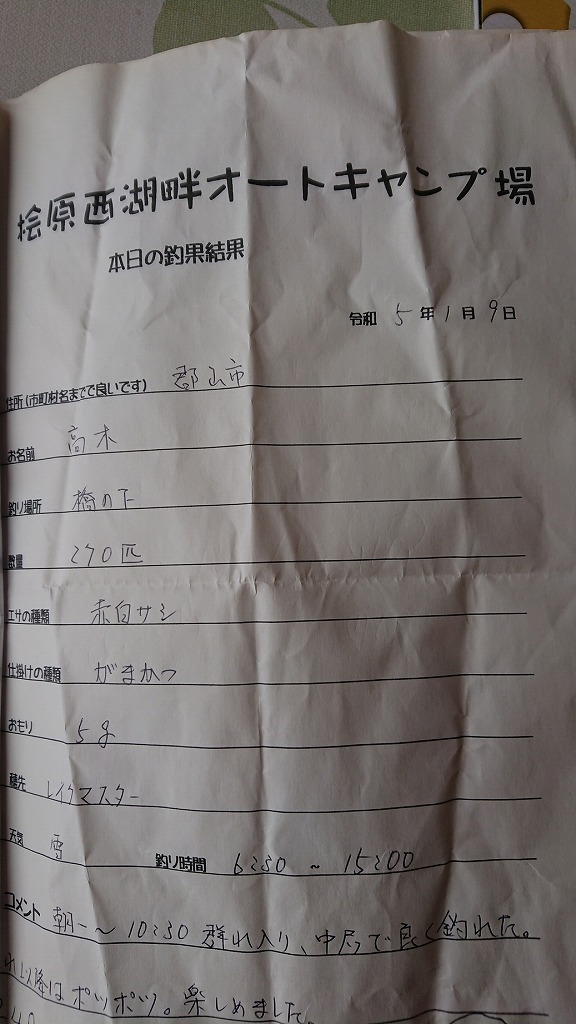 桧原西湖畔オートキャンプ場
本日の釣果結果
令和 5 年 1 月 9 日
住所(市町村名までで良いです) 郡山市
お名前 高木
釣り場所 橋の下
数量 270匹
エサの種類 赤白サシ
仕掛けの種類 がまかつ
おもり 5g
穂先 レイクマスター
天気 雪 釣り時間 6:30 ~ 15:00
コメント 朝一~10:30 群れ入り、中層で良く釣れた。
れ以降はポツポツ。楽しめました。